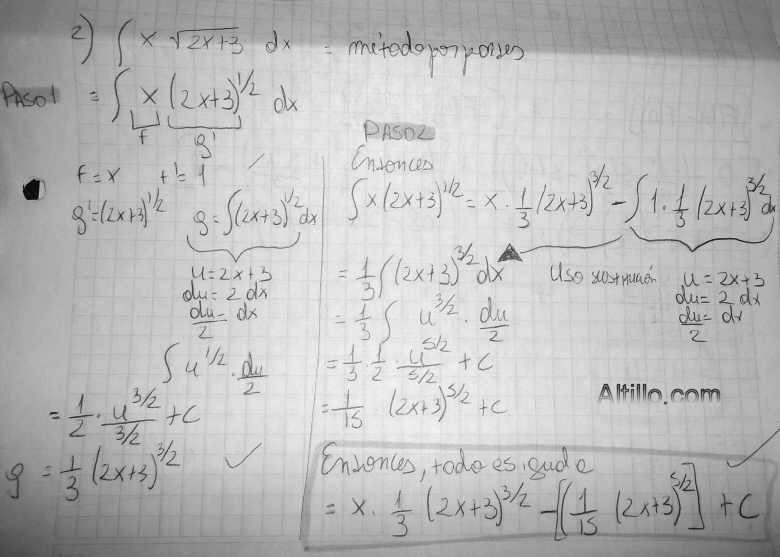 2) ∫ x √2x+3 dx = método por partes
PASO 1 = ∫ x (2x+3)^1/2 dx
f g'
f = x f' = 1
g' = (2x+3)^1/2 g = ∫(2x+3)^1/2 dx
u = 2x+3
du = 2 dx
du/2 = dx
∫ u^1/2 · du/2
= 1/2 · u^3/2 / 3/2 + C
g = 1/3 (2x+3)^3/2
PASO 2
Entonces
∫ x (2x+3)^1/2 = x · 1/3 (2x+3)^3/2 - ∫ 1 · 1/3 (2x+3)^3/2 dx
= 1/3 ∫ (2x+3)^3/2 dx Uso sustitución u = 2x+3
du = 2 dx
du/2 = dx
= 1/3 ∫ u^3/2 · du/2
= 1/3 · 1/2 · u^5/2 / 5/2 + C
= 1/15 (2x+3)^5/2 + C
Altillo.com
Entonces, todo es igual a
= x · 1/3 (2x+3)^3/2 - [(1/15 (2x+3)^5/2] + C